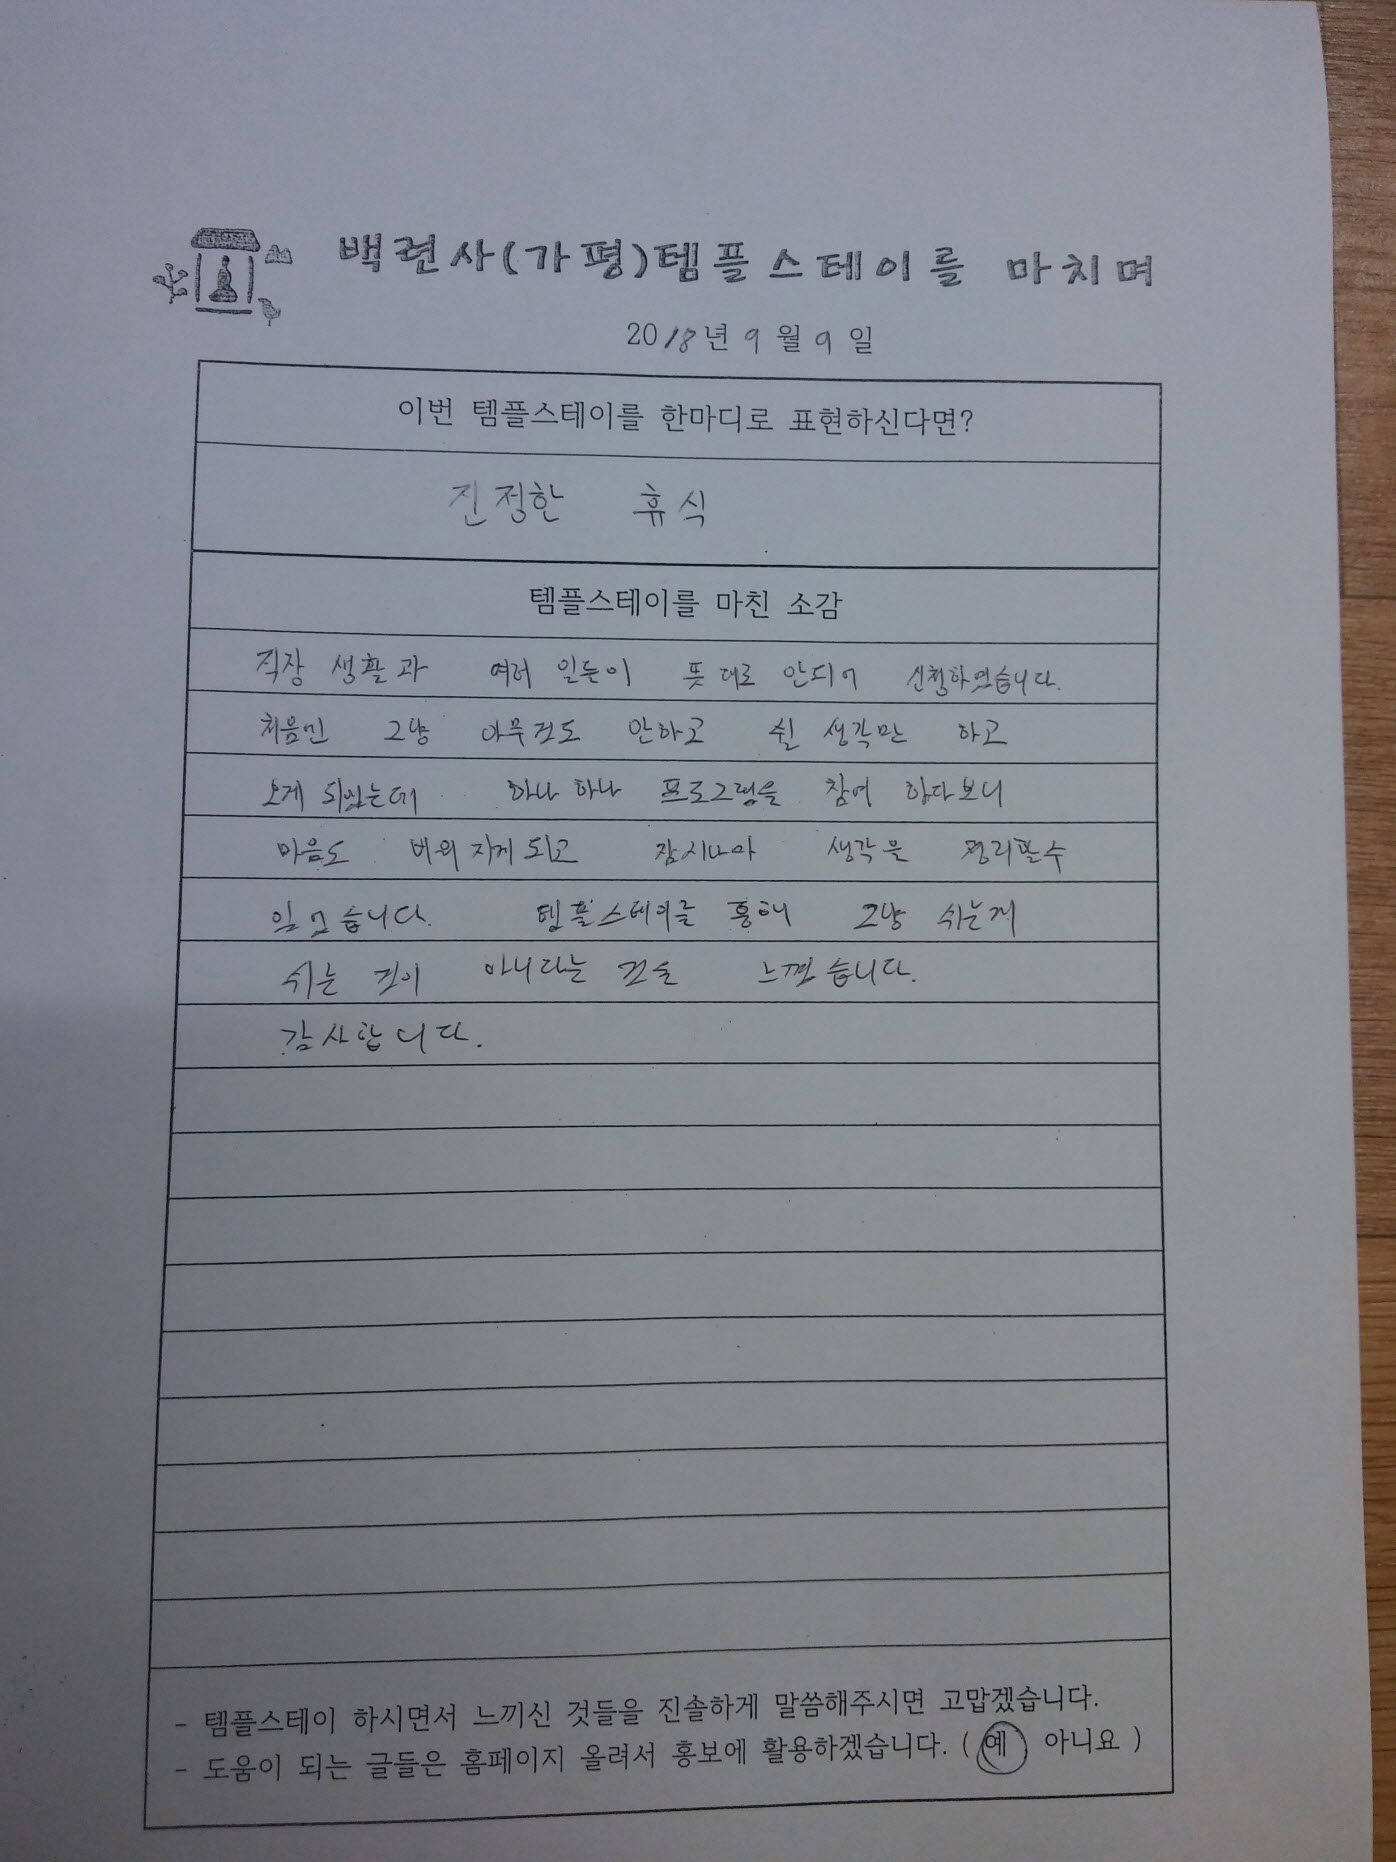 백련사(가평)템플스테이를 마치며
2018년 9월 9일
이번 템플스테이를 한마디로 표현하신다면?
진정한 휴식
템플스테이를 마친 소감
직장 생활과 여러 일들이 뜻대로 안되어 신청하였습니다.
처음엔 그냥 아무것도 안하고 쉴 생각만 하고
오게 되었는데 하나 하나 프로그램을 참여 하다보니
마음도 비워 지게 되고 잠시나마 생각을 정리할수
있었습니다. 템플스테이를 통해 그냥 쉬는게
쉬는 것이 아니다는 것을 느꼈습니다.
감사합니다.
- 템플스테이 하시면서 느끼신 것들을 진솔하게 말씀해주시면 고맙겠습니다.
- 도움이 되는 글들은 홈페이지 올려서 홍보에 활용하겠습니다. ( 예 아니요 )